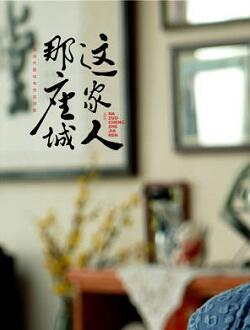 那座城
这家人
NA
ZUO
CHENG
ZHE
JIA
REN